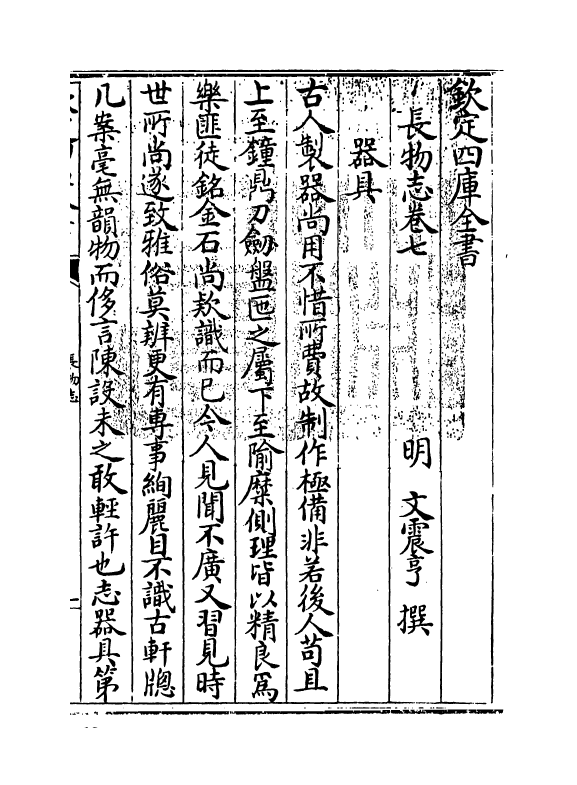 欽定四庫全書
長物志卷七
明 文震亨 撰
器具
古人製器尚用不惜所費故制作極備非若後人苟且
上至鐘鼎刀劔盤匜之屬下至隃糜側理皆以精良為
樂匪徒銘金石尚欵識而已今人見聞不廣又習見時
世所尚遂致雅俗莫辨更有專事絢麗目不識古軒牕
几案毫無韻物而侈言陳設未之敢輕許也志器具第
長物志